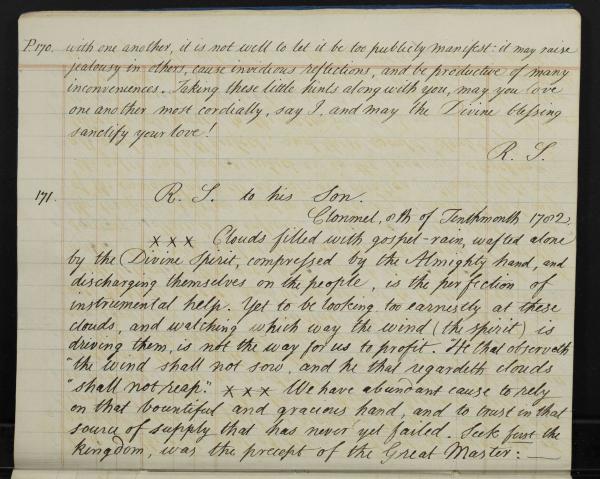 P.170. with one another, it is not well to let it be too publicly manifest: it may raise
jealousy in others, cause invidious reflections, and be productive of many
inconveniences. Taking these little hints along with you, may you love
one another most cordially, say I, and may the Divine blessing
sanctify your love!
R. S.
171. R. S. to his Son.
Clonmel, 8th of Tenthmonth 1782,
x x x Clouds filled with gospel-rain, wafted alone
by the Divine Spirit, compressed by the Almighty hand, and
discharging themselves on the people, is the perfection of
instrumental help. Yet to be looking too earnestly at these
clouds, and watching which way the wind (the spirit) is
driving them, is not the way for us to profit. "He that observeth
"the wind shall not sow, and he that regardeth clouds
"shall not reap." x x x We have abundant cause to rely
on that bountiful and gracious hand, and to trust in that
source of supply that has never yet failed. Seek first the
kingdom, was the precept of the Great Master: —